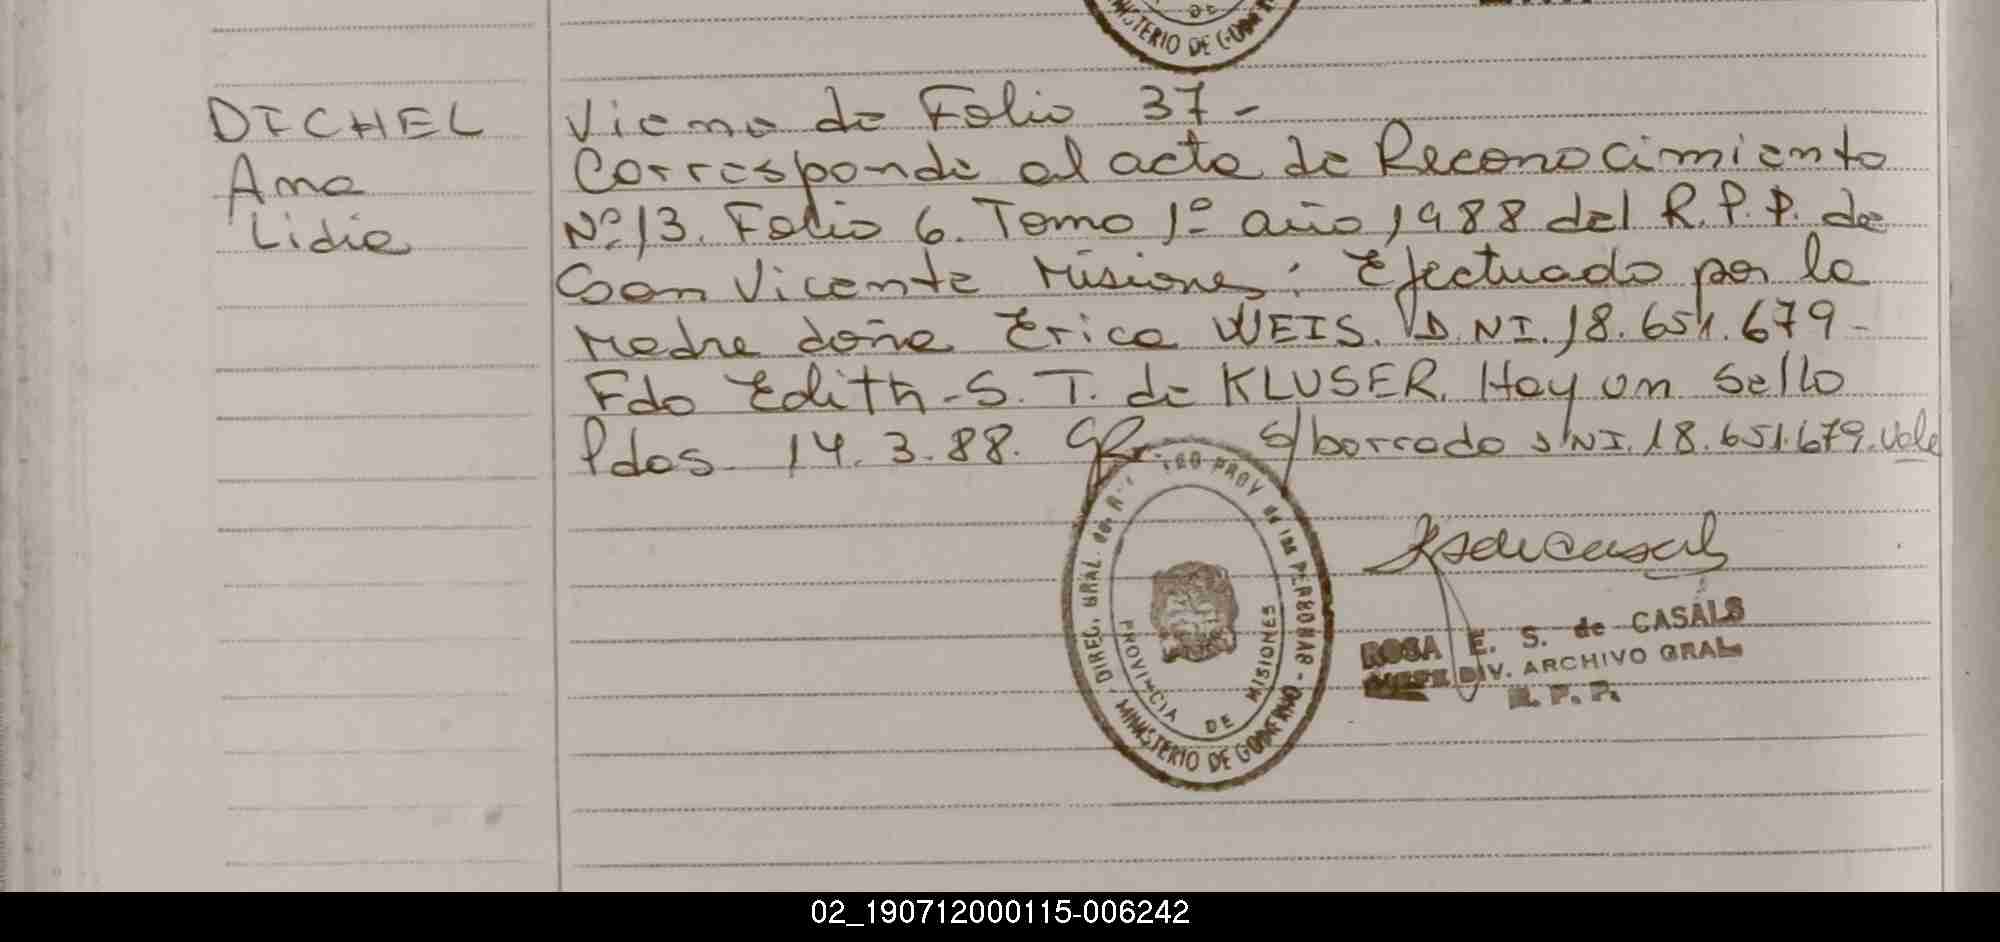 DICHEL
Ana
Lidia
Viene de Folio 37-
Corresponde al acta de Reconocimiento
Nº 13. Folio 6. Tomo 1º año 1988 del R.P.P. de
San Vicente Misiones: Efectuado por la
Madre doña Erica WEIS. D.NI. 18.651.679-
Fdo Edith-S. T. de KLUSER. Hay un Sello
Pdas. 14.3.88. s/borrado NI. 18.651.679. Vale
DIREC. GRAL. del PROV de las PERSONAS - MINISTERIO DE GOBIERNO
PROVINCIA DE MISIONES
ROSA E. S. de CASALS
JEFE DIV. ARCHIVO GRAL
R. P. P.
MINISTERIO DE GOBIERNO
02_190712000115-006242